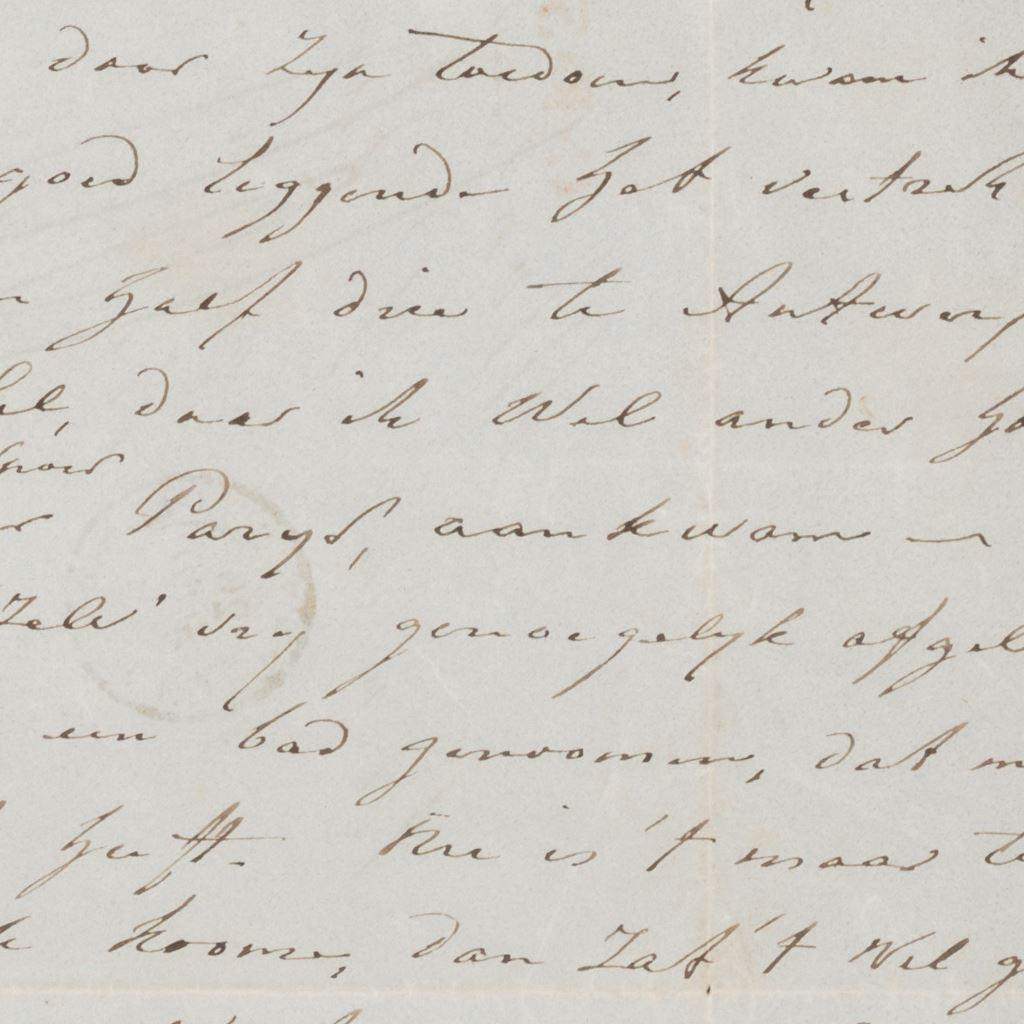 door Zyn toedoen, kwam ik
goed leggende het vertrek
half drie te Antwerp
daar ik Wel ander
Parys, aankwam —
Zelv' vry genoegelyk afgel
een bad genoomen, dat m
heeft. Nu is 't maar te
koome, dan Zal 't Wel g